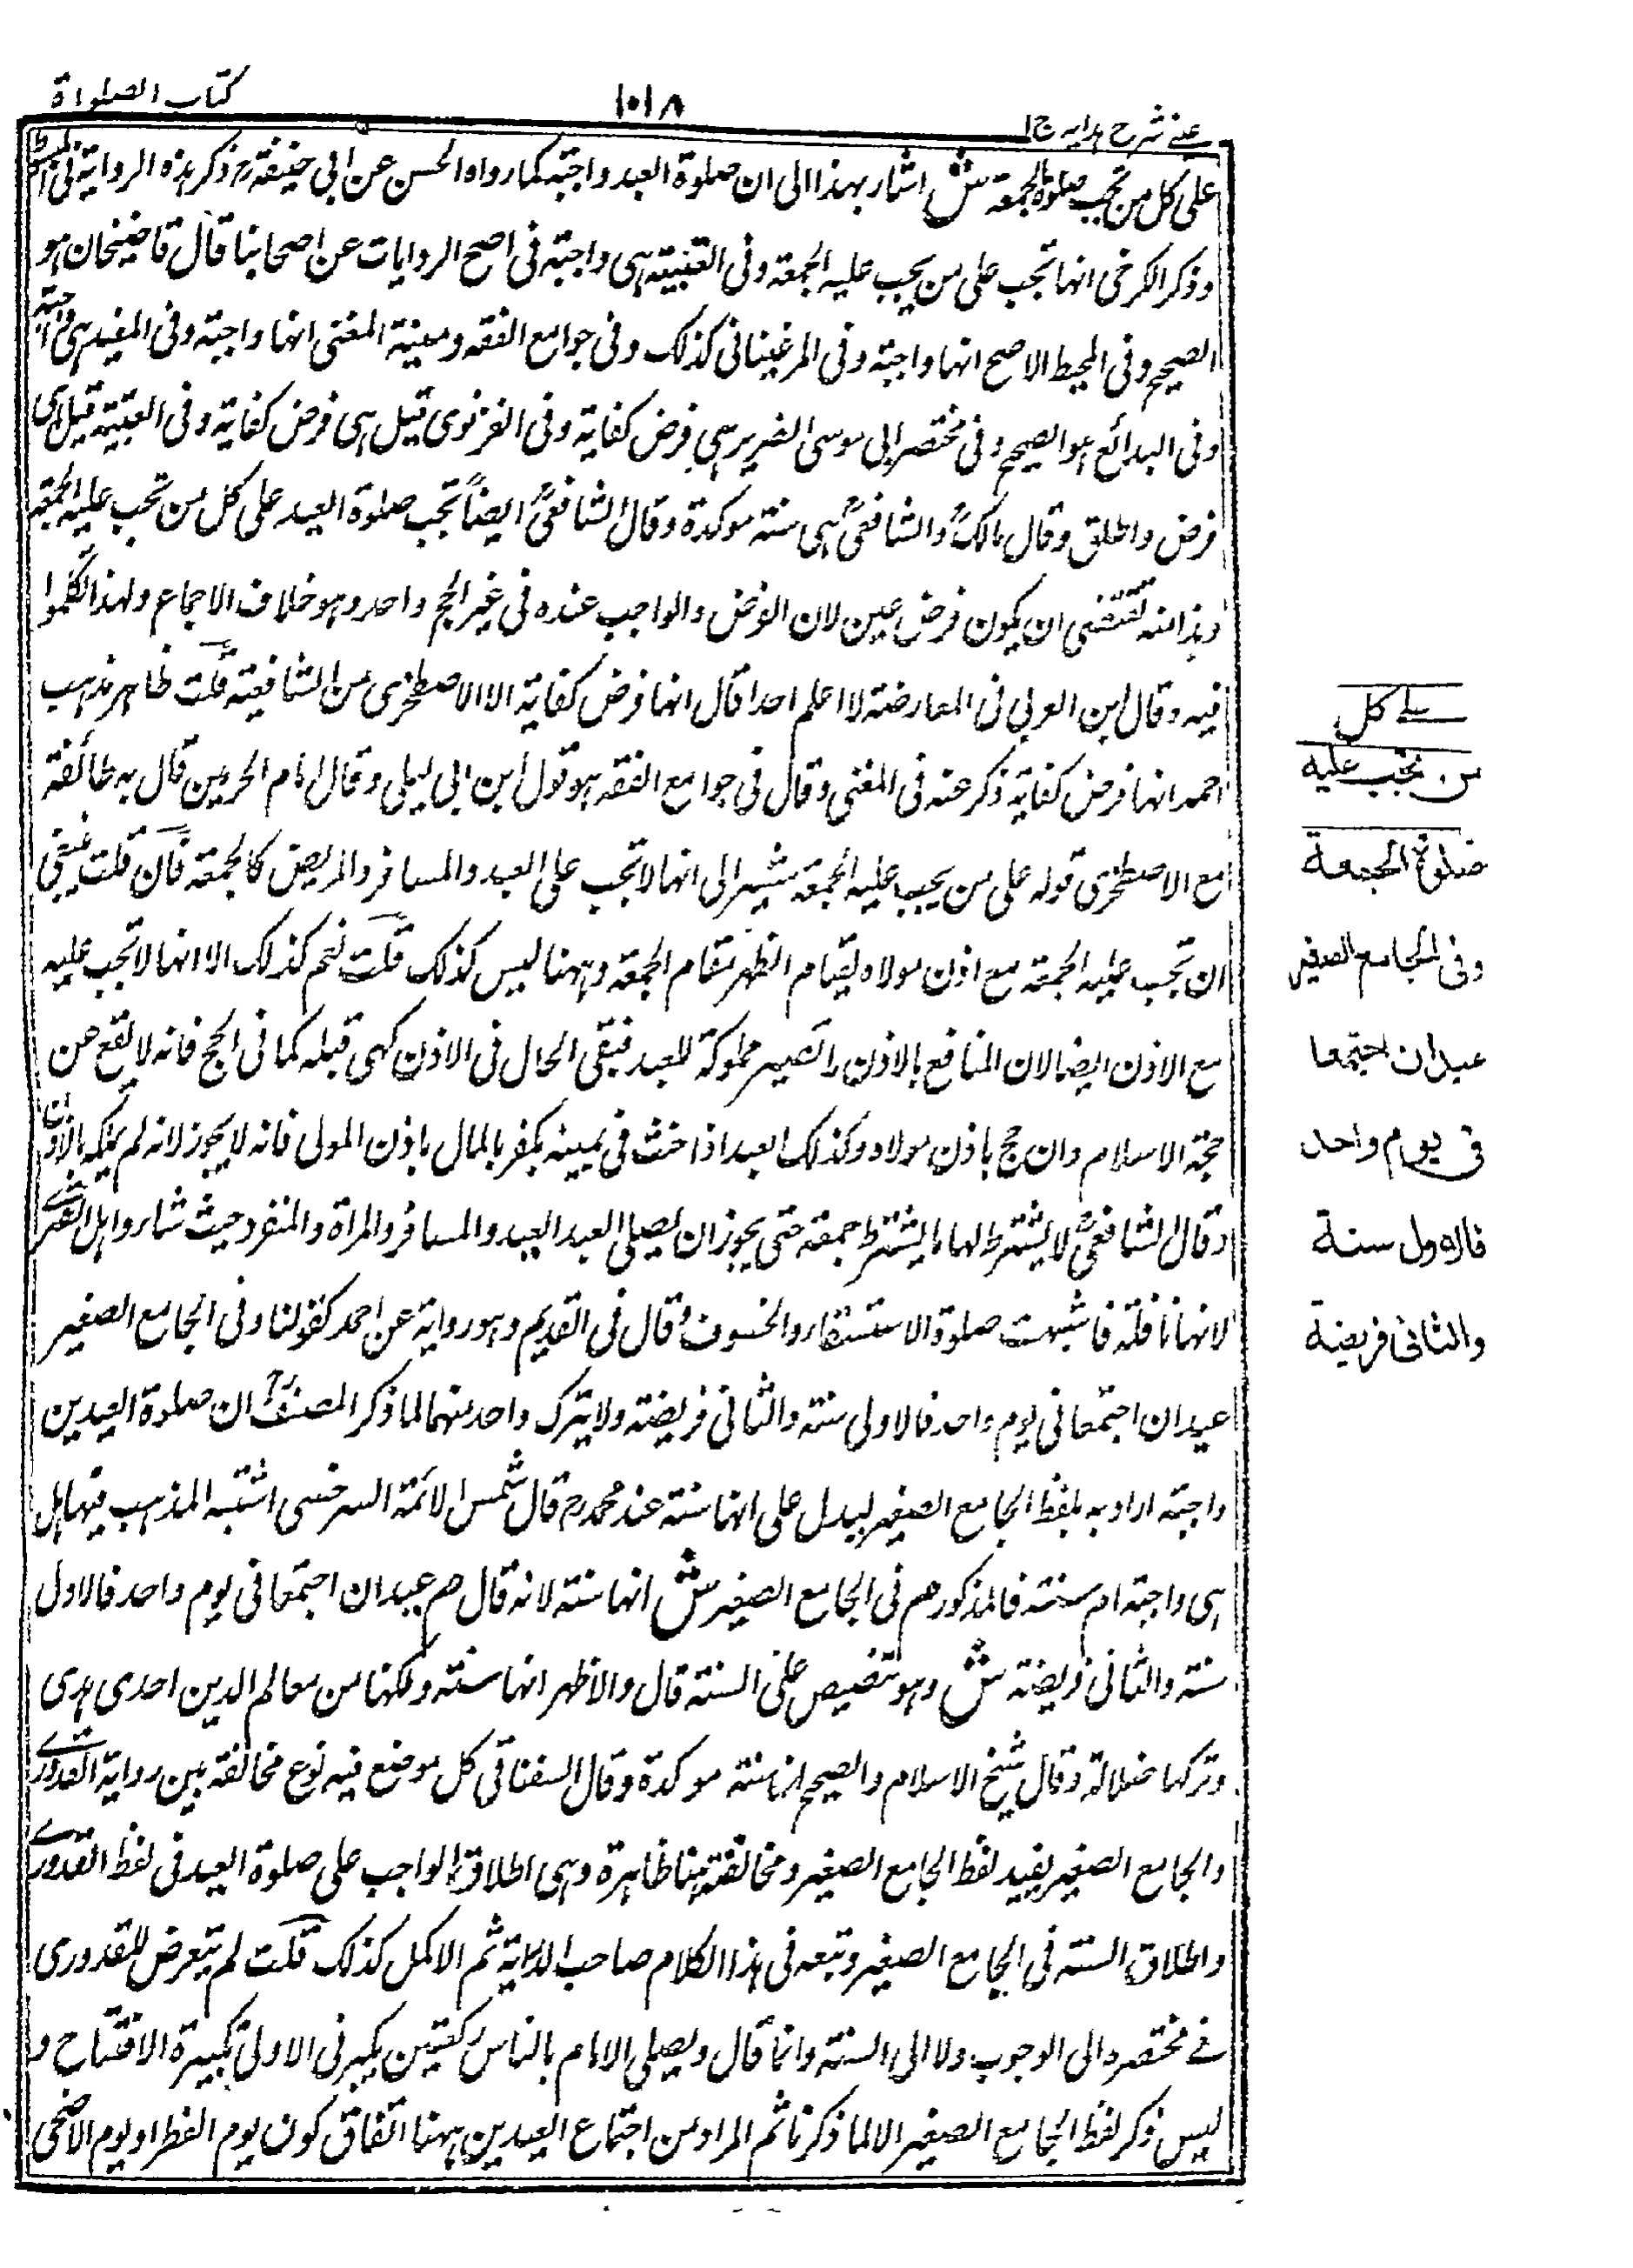 كتاب الصلواة
١٠١٨
عينى شرح هدايه ج١
على كل من تجب صلوة الجمعة ش اشار بهذا الى ان صلوة العيد واجبة كما رواه الحسن عن ابي حنيفة رح ذكر هذه الرواية فى المبسوط
وذكر الكرخى انها تجب على من يجب عليه الجمعة وفى القنية هى واجبة فى اصح الروايات عن اصحابنا قال قاضيخان هو
الصحيح وفى المحيط الاصح انها واجبة وفى المرغينانى كذلك وفى جوامع الفقه ومنية المفتى انها واجبة وفى المفيد هى واجبة
وفى البدائع هو الصحيح وفى مختصر ابى موسى الضرير هى فرض كفاية وفى الغزنوى قيل هى فرض كفاية وفى القنية قيل هى
فرض واطلق وقال مالكؒ والشافعىؒ هى سنة موكدة وقال الشافعىؒ ايضاً تجب صلوة العيد على كل من تجب عليه الجمعة
وهذا منه يقتضى ان يكون فرض عين لان الفرض والواجب عنده فى غير الحج واحد وهو خلاف الاجماع ولهذا تكلموا
فيه وقال ابن العربى فى المعارضة لا اعلم احدا قال انها فرض كفاية الا الاصطخرى من الشافعية قلت ظاهر مذهب
احمد انها فرض كفاية ذكر عنه فى المغنى وقال فى جوامع الفقه هو قول ابن ابى ليلى وقال امام الحرمين قال به طائفة
مع الاصطخرى قوله على من يجب عليه الجمعة يشير الى انها لا تجب على العبد والمسافر والمريض كالجمعة فان قلت ينبغى
ان تجب عليه الجمعة مع اذن مولاه لقيام الظهر مقام الجمعة وههنا ليس كذلك قلت نعم كذلك الا انها لا تجب عليه
مع الاذن ايضا لان المنافع بالاذن لا تصير مملوكة للعبد فبقى الحال فى الاذن كهى قبله كما فى الحج فانه لا يقع عن
حجة الاسلام وان حج باذن مولاه وكذلك العبد اذا حنث فى يمينه يكفر بالمال باذن المولى فانه لا يجوز لانه لم يملكه بالاذن
وقال الشافعىؒ لا يشترط لها ما يشترط جمعة حتى يجوز ان يصلى العيد العبد والمسافر والمراة والمنفرد حيث شاروا اهل القرى
لانها نافلة فاشبهت صلوة الاستسقاء والخسوف وقال فى القديم وهو رواية عن احمد كقولنا وفى الجامع الصغير
عيدان اجتمعا فى يوم واحد فالاولى سنة والثانى فريضة ولا يترك واحد منهما لما ذكر المصنفؒ ان صلوة العيدين
واجبة اراد به بلفظ الجامع الصغير ليدل على انها سنة عند محمد رح قال شمس الائمة السرخسى اشتبه المذهب فيها هل
هى واجبة ام سنة فالمذكور هم فى الجامع الصغير ش انها سنة لانه قال هم عيدان اجتمعا فى يوم واحد فالاول
سنة والثانى فريضة ش وهو تنصيص على السنة قال والاظهر انها سنة ولكنها من معالم الدين احدى هدى
وتركها ضلالة وقال شيخ الاسلام والصحيح انها سنة موكدة وقال السغناقى كل موضع فيه نوع مخالفة بين رواية القدورى
والجامع الصغير يقيد لفظ الجامع الصغير ومخالفة هنا ظاهرة وهى اطلاق الواجب على صلوة العيد فى لفظ القدورى
واطلاق السنة فى الجامع الصغير وتبعه فى هذا الكلام صاحب الدراية ثم الاكمل كذلك قلت لم يتعرض القدورى
فى مختصره الى الوجوب ولا الى السنة وانما قال ويصلى الامام بالناس ركعتين يكبر فى الاولى تكبيرة الافتتاح و
ليس ذكر لفظ الجامع الصغير الا لما ذكرنا ثم المراد من اجتماع العيدين ههنا اتفاق كون يوم الفطر او يوم الاضحى
على كل
من تجب عليه
صلوة الجمعة
وفى الجامع الصغير
عيدان اجتمعا
فى يوم واحد
فالاول سنة
والثانى فريضة